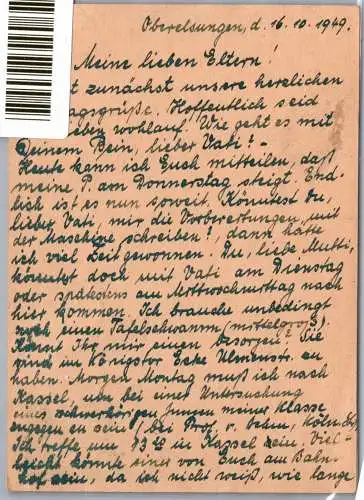 Oberelsungen, d. 16.10.1949.
Meine lieben Eltern!
t zunächst unsere herzlichen
agsgrüße. Hoffentlich seid
eben wohlauf. Wie geht es mit
Deinem Bein, lieber Vati? -
Heute kann ich Euch mitteilen, daß
meine P. am Donnerstag steigt. End-
lich ist es nun soweit. Könntest Du,
lieber Vati, mir die Vorbereitungen mit
der Maschine schreiben?, dann hätte
ich viel Zeit gewonnen. Du, liebe Mutti,
könntest doch mit Vati am Dienstag
oder spätestens am Mittwochmittag nach
hier kommen. Ich brauche unbedingt
noch einen Tafelschwamm (mittelgroß).
Könnt Ihr mir einen besorgen? Sie
sind im Königstor Ecke Ulmenstr. zu
haben. Morgen Montag muß ich nach
Kassel, um bei einer Untersuchung
eines schwerhörigen Jungen meiner Klasse
zugegen zu sein (bei Prof. v.
Ich treffe um 13 in Kassel ein. Viel-
leicht könnte einer von Euch am Bahn-
hof sein, da ich nicht weiß, wie lange